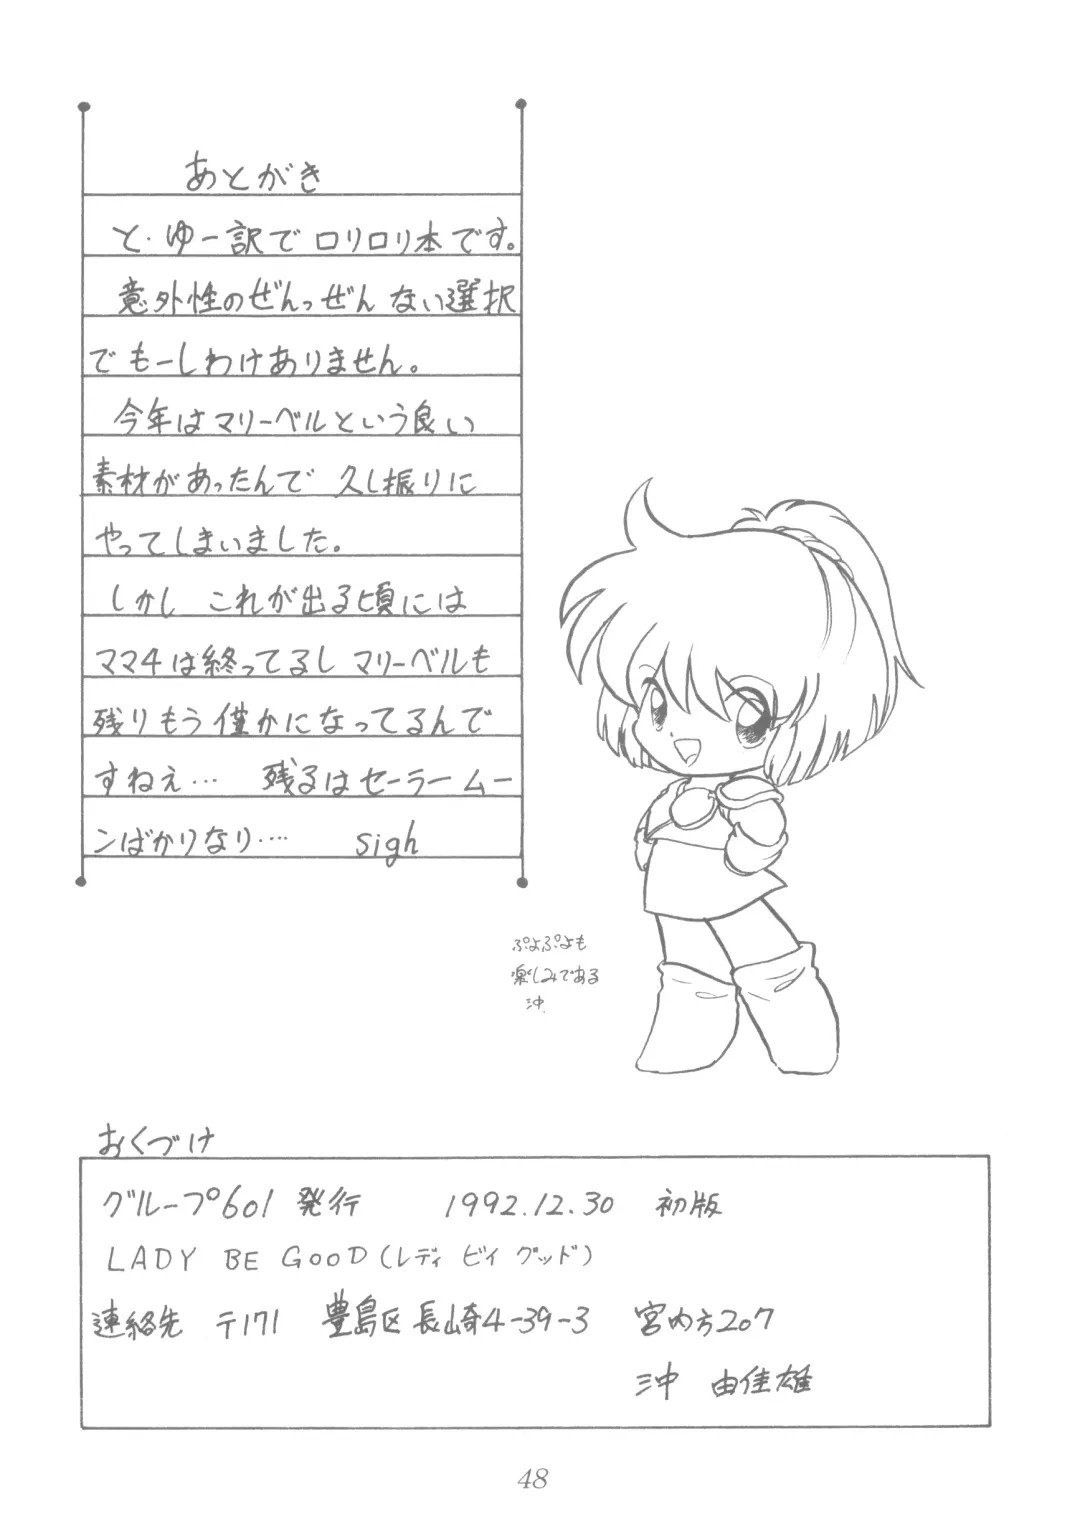 あとがき
と・ゆー訳でロリロリ本です。
意外性のぜんっぜんない選択
でもーしわけありません。
今年はマリーベルという良い
素材があったんで 久し振りに
やってしまいました。
しかし これが出る頃には
ママ4は終ってるし マリーベルも
残りもう僅かになってるんで
すねえ… 残るはセーラームー
ンばかりなり…. sigh
ぷよぷよも
楽しみである
沖
おくづけ
グループ601 発行 1992.12.30 初版
LADY BE GOOD(レディ ビィ グッド)
連絡先 〒171 豊島区長崎4-39-3 宮内方207
沖 由佳雄
48